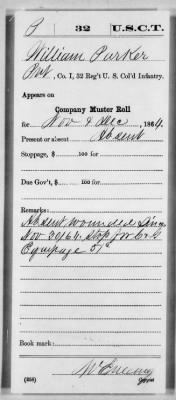 P 32 U.S.C.T.
William Parker
Pvt., Co. I, 32 Reg't U. S. Col'd Infantry.
Appears on
Company Muster Roll
for Nov & Dec, 1864.
Present or absent Absent
Stoppage, $ 100 for
Due Gov't, $ 100 for
Remarks:
Absent, wounded since
Nov 30/64. Stop for C & G
Equipage
Book mark:
(358) Copyist.